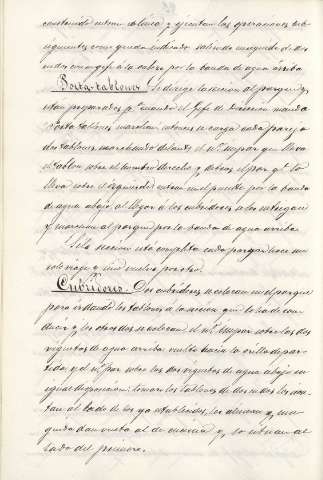 construido entran colinea y ejecutan las operaciones sub-
siguientes como queda indicado saliendo enseguida de dos
en dos con su gefe a la cabeza por la banda de agua arriba
Porta-tablones. Se dirige la seccion al parque y es-
tan preparados pª cuando el Jefe de Direccion manda
Porta tablones marchen, entonces se carga cada pareja
dos tablones marchando delante el nº impar que lleva
el tablon sobre el hombro derecho y detras el par qº lo
lleva sobre el izquierdo entran en el puente por la banda
de agua abajo, al llegar a los cubridores se los entregan
y marchan al parque por la banda de agua arriba.
Si la seccion está completa cada pareja hace un
solo viage y uno vuelve por otro.
Cubridores. Dos cubridores se colocan en el parque
para ir dando los tablones a la seccion que los ha de con-
ducir y los otros dos se colocan el nº impar sobre las dos
viguetas de agua arriba vuelto hacia la orilla de par-
tida, y el nº par sobre las dos viguetas de agua abajo en
igual disposicion: toman los tablones de dos en dos los sien-
tan al lado de los ya establecidos, los alinean y, en se-
guida dan vuelta al de encima y, se situan al
lado del primero.